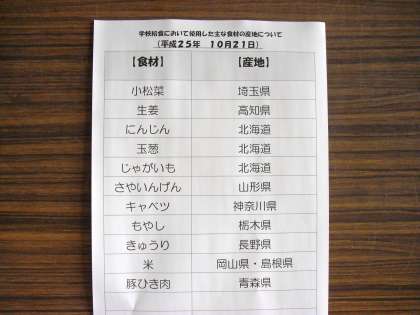 学校給食において使用した主な食材の産地について
（平成25年　10月21日）
【食材】　【産地】
小松菜　埼玉県
生姜　高知県
にんじん　北海道
玉葱　北海道
じゃがいも　北海道
さやいんげん　山形県
キャベツ　神奈川県
もやし　栃木県
きゅうり　長野県
米　岡山県・島根県
豚ひき肉　青森県